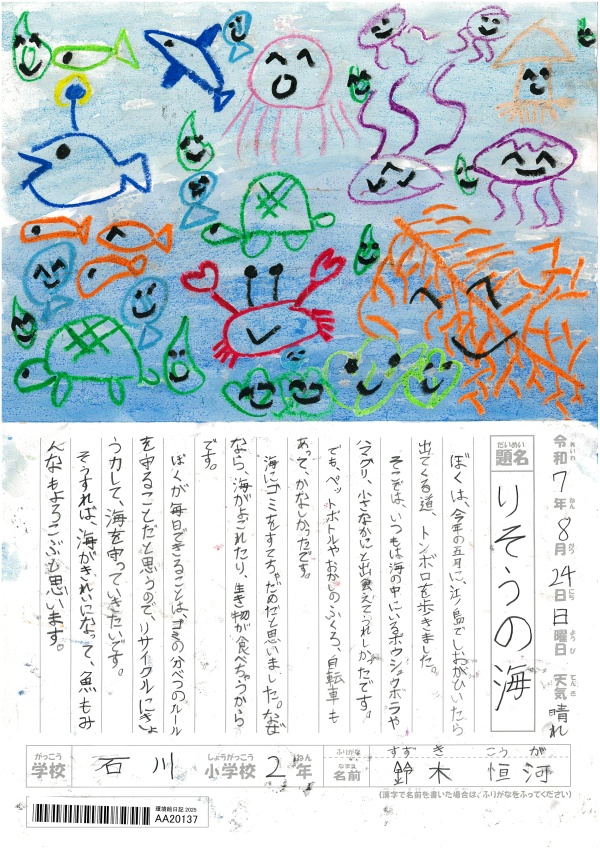 令和 れいわ 7 年 ねん 8 月 がつ 24 日 にち 日 曜日 ようび 天気 てんき 晴れ
題名 だいめい りそうの海
ぼくは、今年の五月に、江ノ島でしおがひいたら
出てくる道、トンボロを歩きました。
そこでは、いつもは海の中にいるボウシュウボラや
ハマグリ、小さなかにと出会えてうれしかったです。
でも、ペットボトルやおかしのふくろ、自転車も
あって、かなしかったです。
海にゴミをすてちゃだめだと思いました。なぜ
なら、海がよごれたり、生き物が食べちゃうから
です。
ぼくが毎日できることは、ゴミのかべつのルール
を守ることだと思うので、リサイクルにきょ
う力して、海を守っていきたいです。
そうすれば、海がきれいになって、魚もみ
んなもよろこぶと思います。
学校 がっこう 石川 小学校 しょうがっこう 2 年 ねん ふりがな すず き こう が
名前 なまえ 鈴木 恒河
(漢字で名前を書いた場合は、ふりがなをふってください)
環境絵日記 2025
AA20137